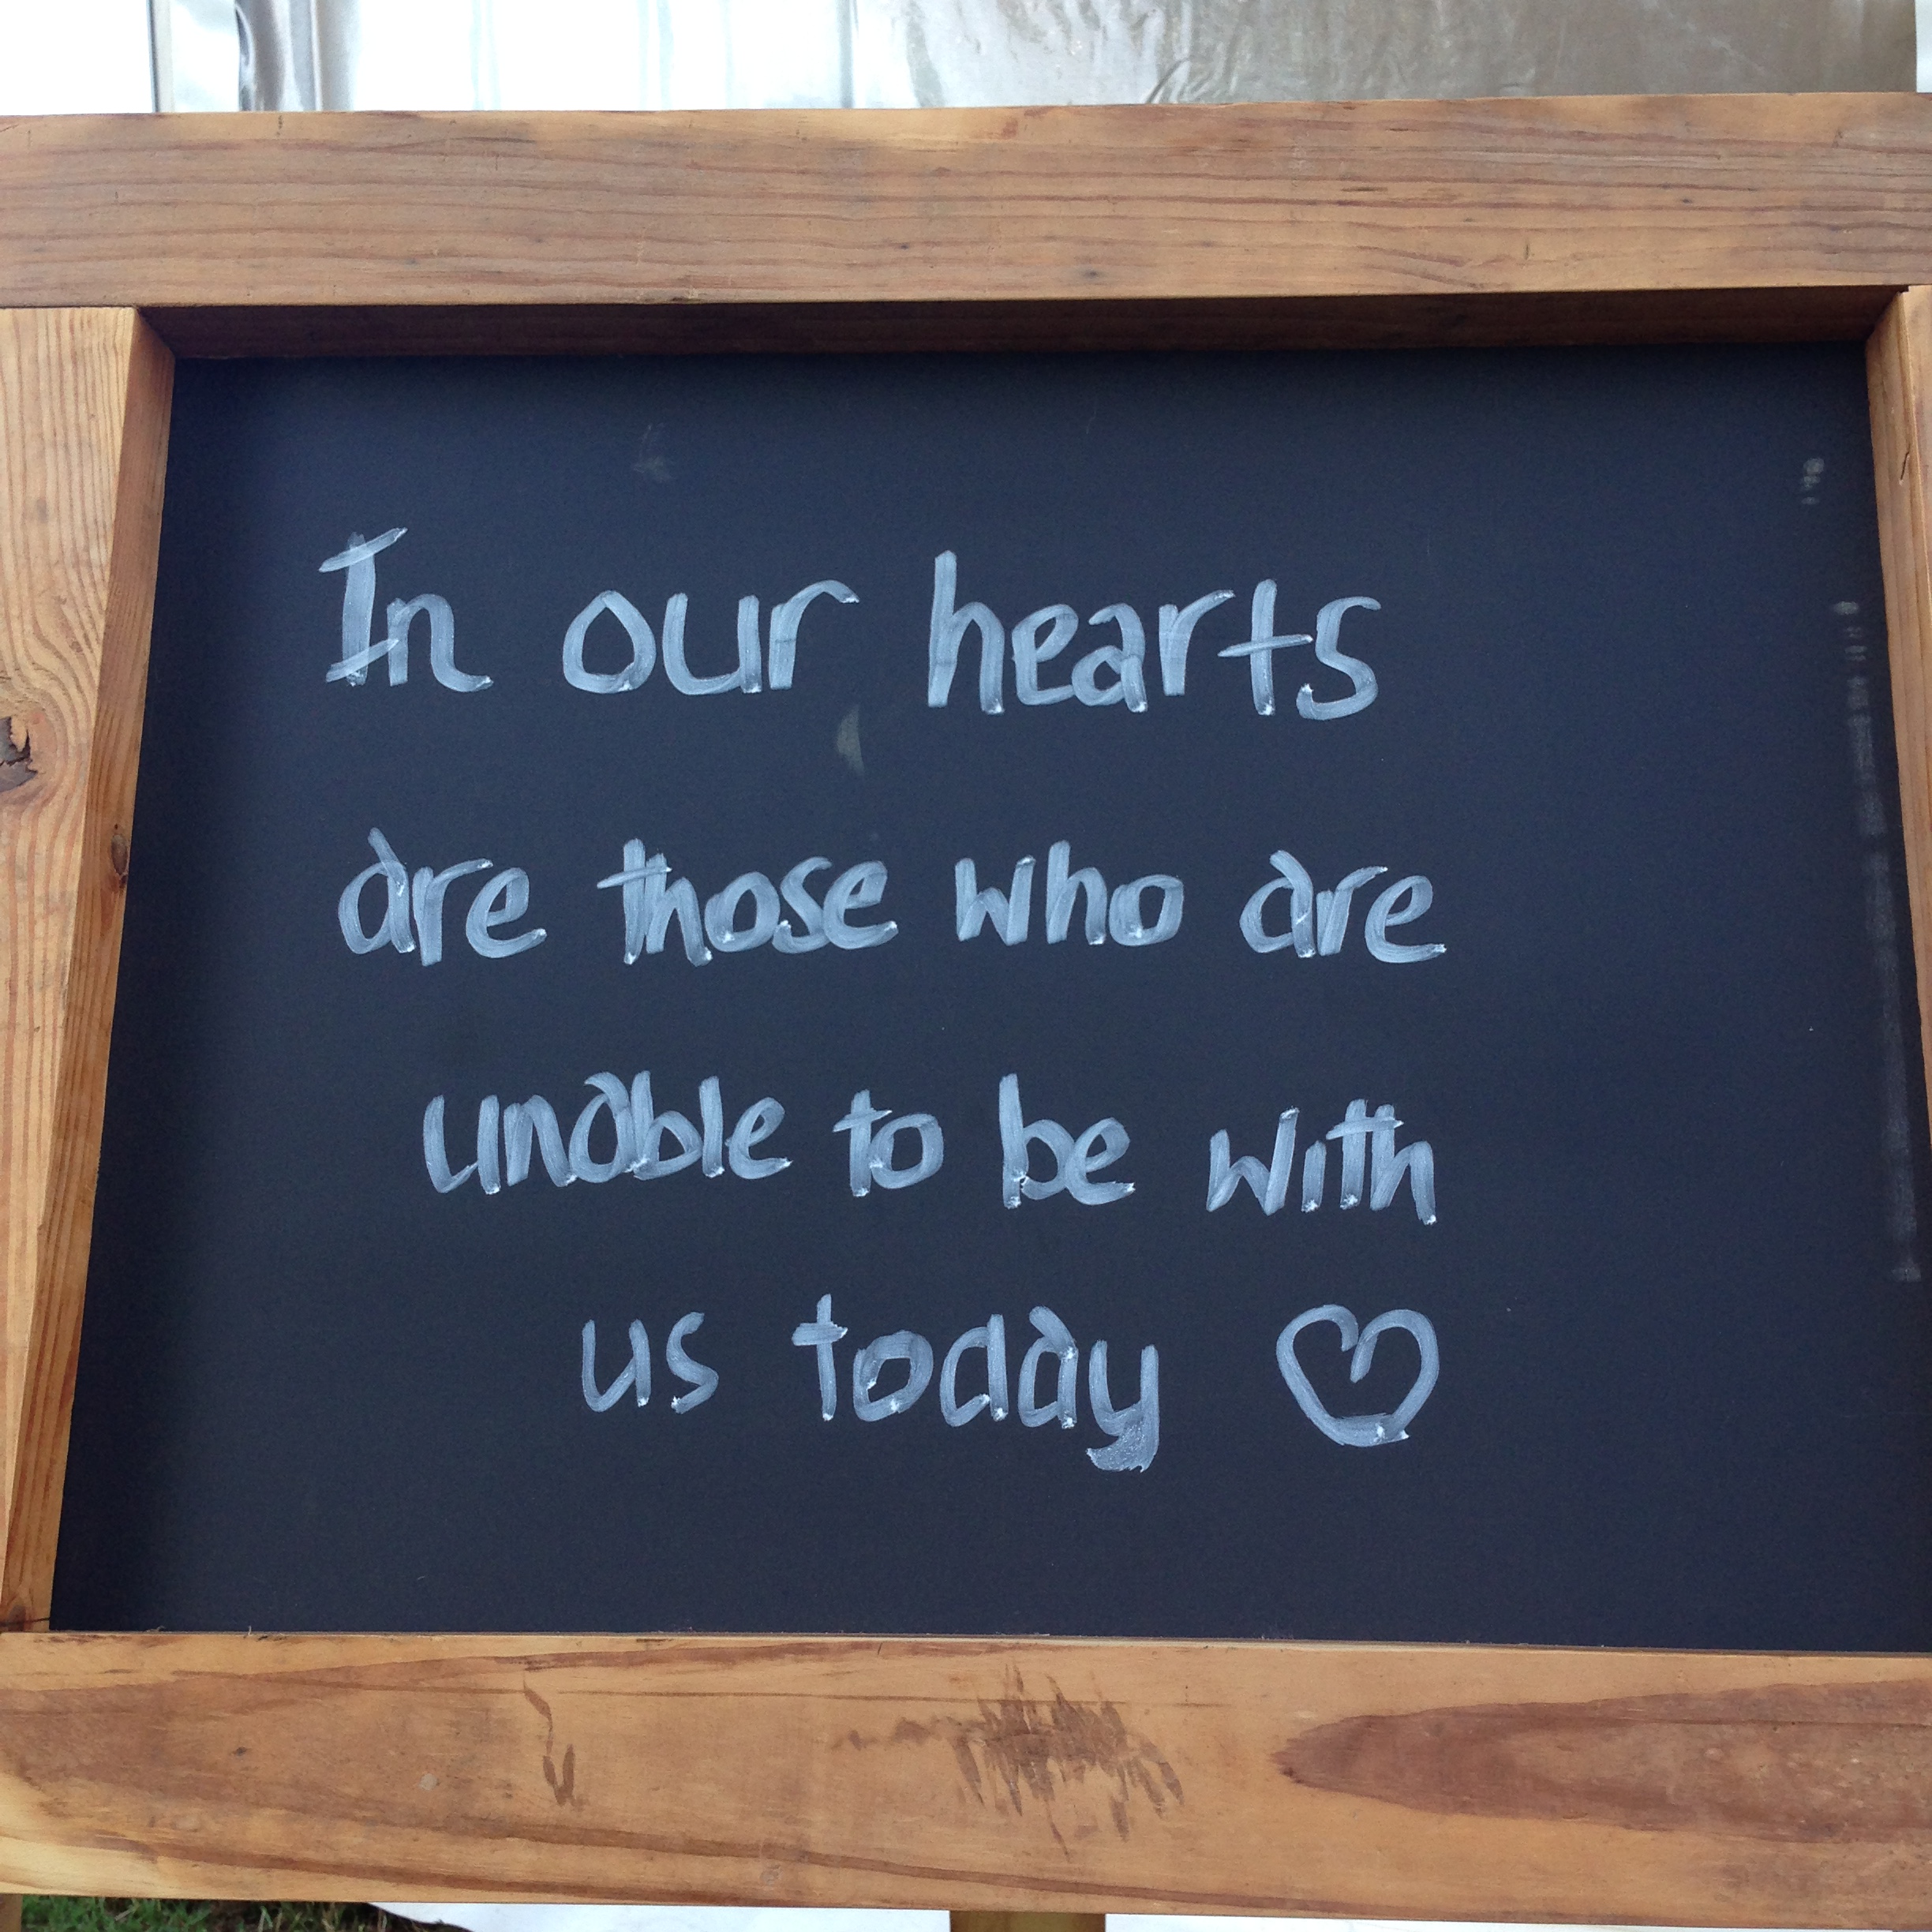 In our hearts
are those who are
unable to be with
us today ♡